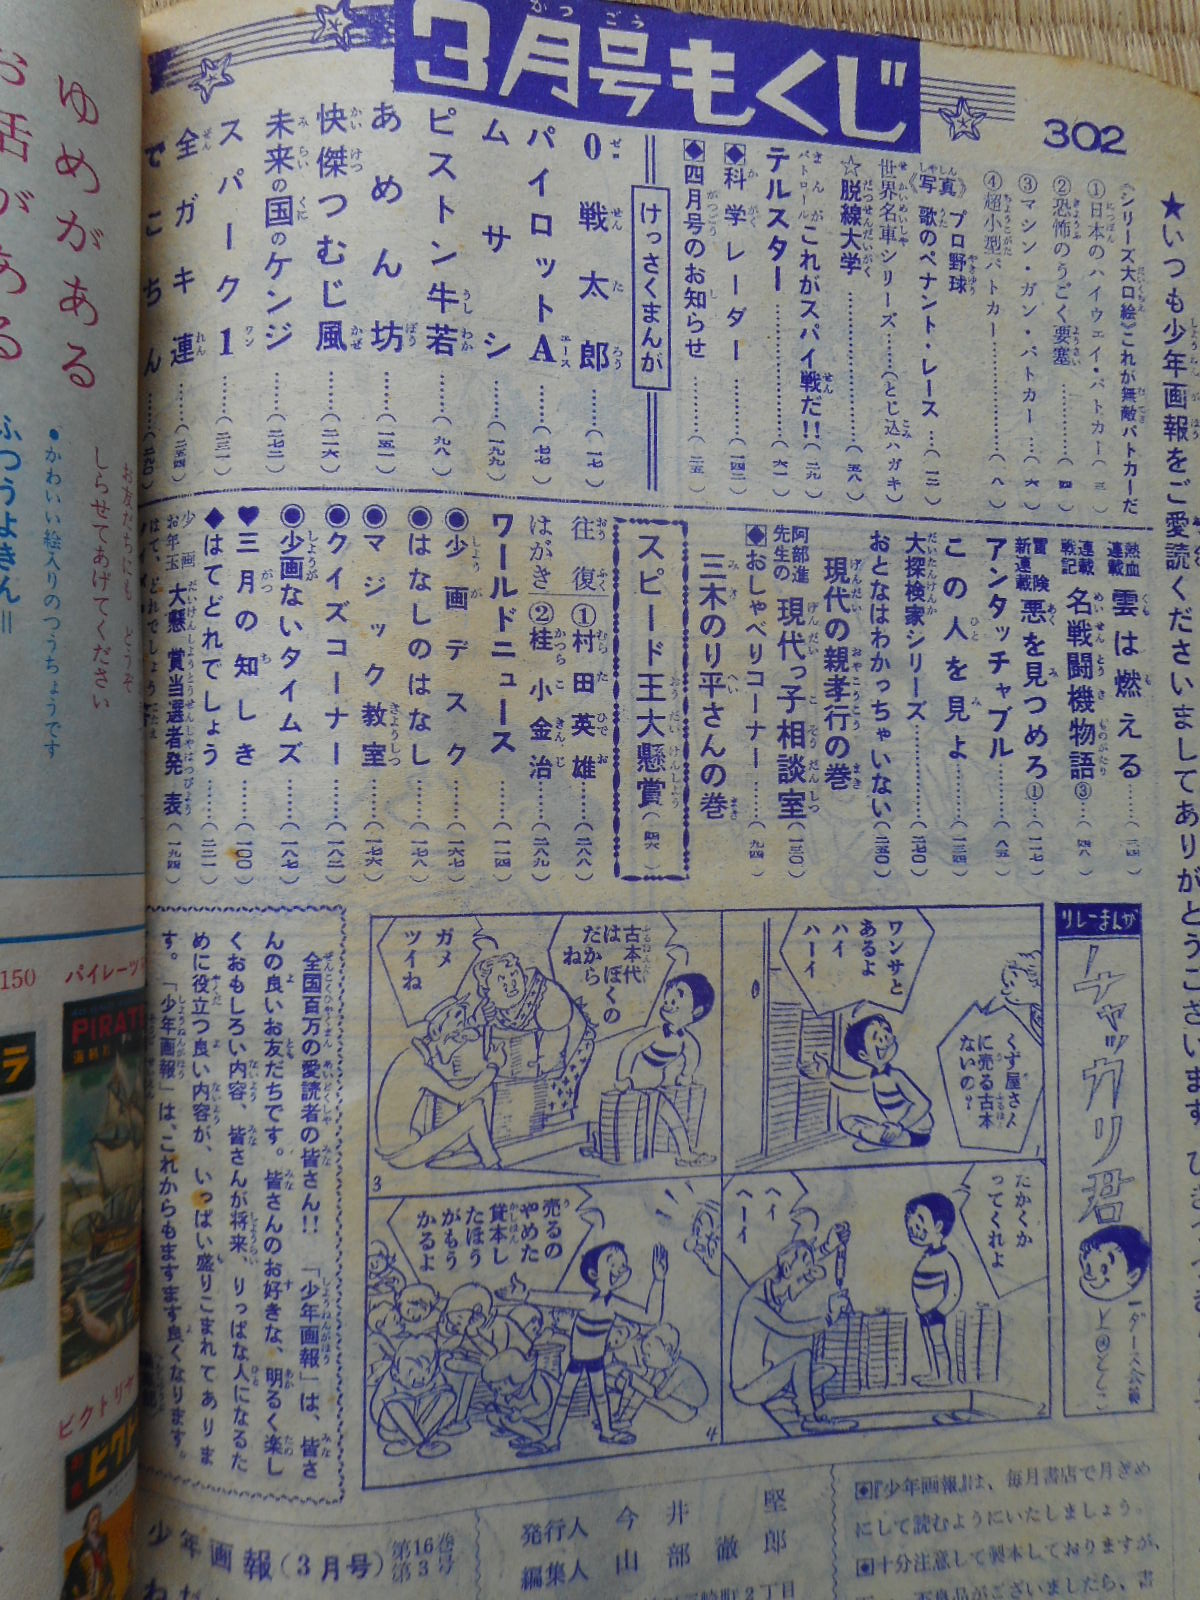 3月号もくじ
302
★いつも少年画報をご愛読くださいましてありがとうございます
《シリーズ大口絵》これが無敵パトカーだ
①日本のハイウェイ・パトカー
②恐怖のうごく要塞……(四)
③マシン・ガン・パトカー……(六)
④超小型パトカー……(八)
《写真》プロ野球
歌のペナント・レース…(一二)
世界名車シリーズ……(とじ込ハガキ)
☆脱線大学……(五八)
これがスパイ戦だ!!
テルスター……(六一)
◆科学レーダー……(一四二)
◆四月号のお知らせ……(二五)
けっさくまんが
0戦太郎……(一七)
パイロットA……(七七)
ムサシ……(一九九)
ピストン牛若……(九八)
あめん坊……(一五一)
快傑つむじ風……(二一六)
未来の国のケンジ……(二七二)
スパーク1……(二三一)
全ガキ連……(二五四)
でこちん
熱血連載 雲は燃える……(三四)
連載戦記 名戦闘機物語③……(四八)
冒険新連載 悪を見つめろ①…(二一七)
アンタッチャブル……(八五)
この人を見よ……(一三四)
大探検家シリーズ……(二四〇)
おとなはわかっちゃいない(二五〇)
現代の親孝行の巻
阿部進先生の 現代っ子相談室(一三〇)
◆おしゃべりコーナー……(九四)
三木のり平さんの巻
スピード王大懸賞(四六)
往復はがき
①村田英雄……(二八八)
②桂小金治……(二八九)
ワールドニュース……(一一四)
◉少画デスク……(一六七)
◉はなしのはなし……(一七八)
◉マジック教室……(一七六)
◉クイズコーナー……(一八二)
◉少画ないタイムズ……(一八七)
♥三月の知しき……(一〇〇)
◆はてどれでしょう……(二二一)
少画お年玉 大懸賞当選者発表(一九四)
リレーまんが
チャッカリ君
くず屋さんに売る古本ないの?
ワンサとあるよ
ハイハーイ
1
たかくかってくれよ
ヘイヘーイ
2
古本代はぼくのだからね
ガメツイね
3
売るのやめた
貸本したほうがもうかるよ
4
全国百万の愛読者の皆さん!!「少年画報」は、皆さ
んの良いお友だちです。皆さんのお好きな、明るく楽し
くおもしろい内容、皆さんが将来、りっぱな人になるた
めに役立つ良い内容が、いっぱい盛りこまれてありま
す。「少年画報」は、これからもますます良くなります。
◆『少年画報』は、毎月書店で月ぎめ
にして読むようにいたしましょう。
◆十分注意して製本しておりますが、
不良品がございましたら、書
発行人 今井 堅
編集人 山部徹郎
崎町2丁目
少年画報(3月号) 第16巻 第3号
ゆめがある
お話がある
お友だちにも どうぞ
しらせてあげてください
•かわいい絵入りのつうちょうです
ふつうよきん
150
パイレーツ
PIRATE
ラ
ビクトリヤ
ビクト